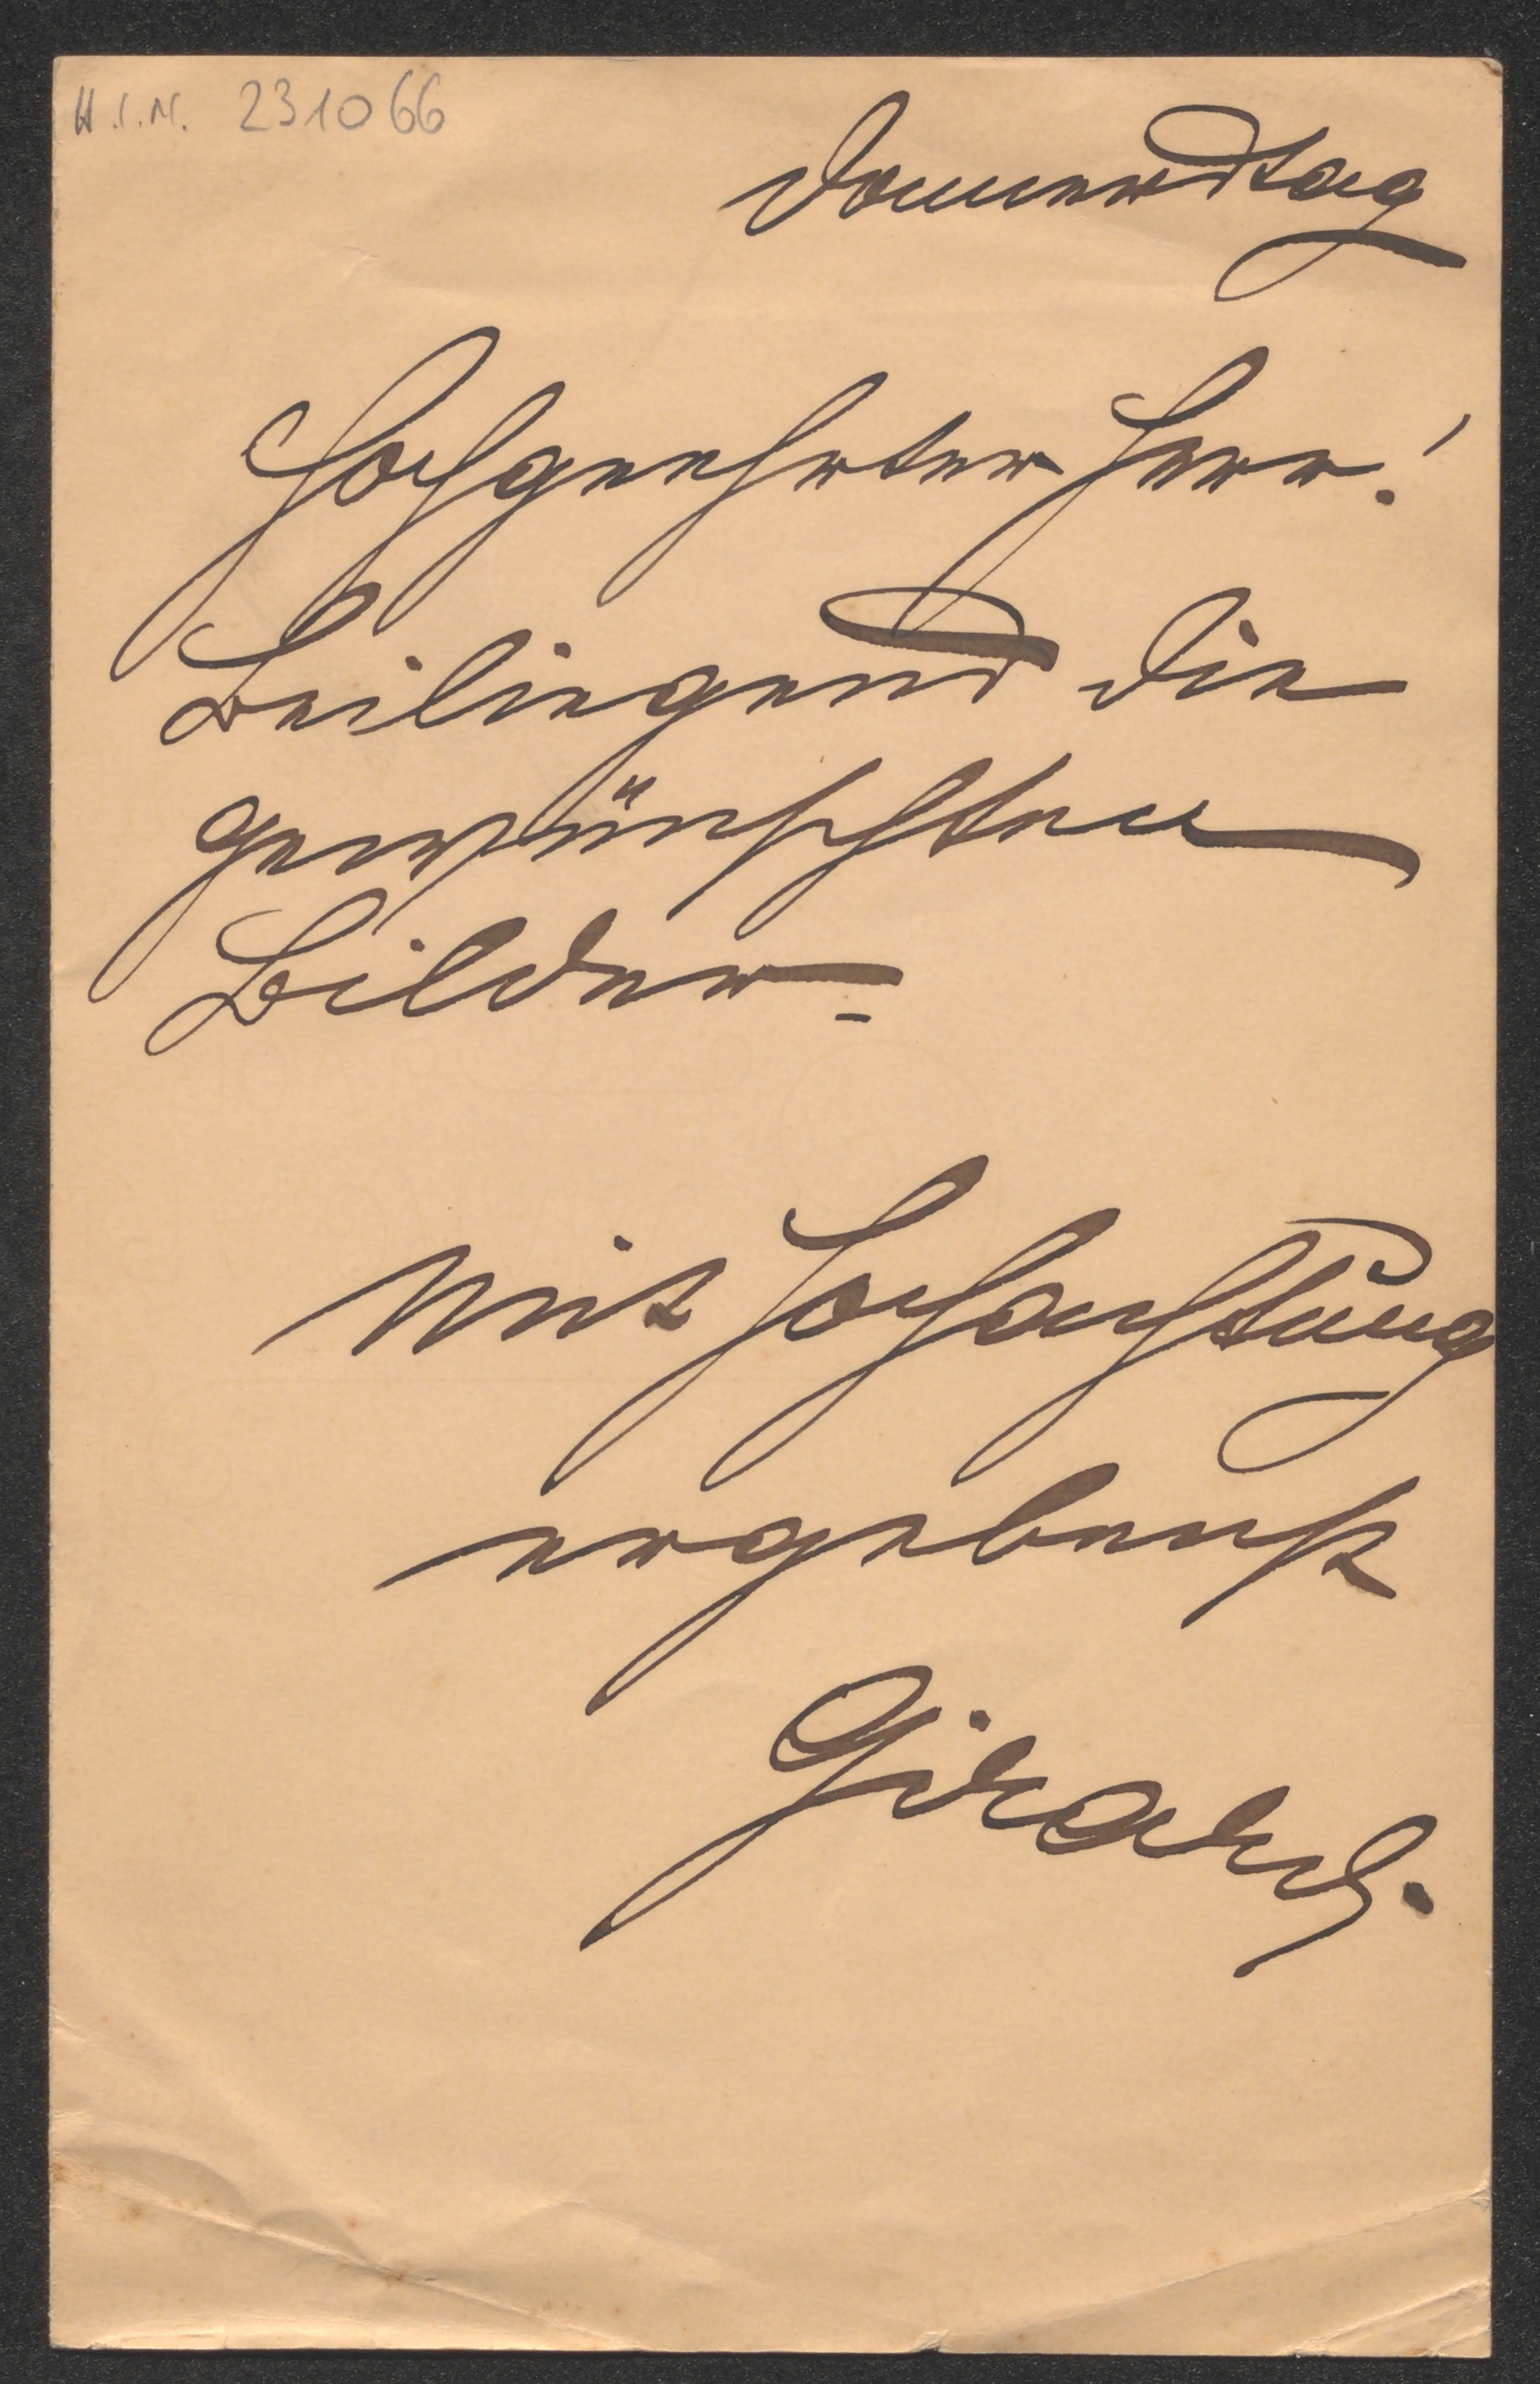 H.I.N. 231066
Donnerstag
Hochgeehrter Herr!
Beiliegend die
gewünschten
Bilder.
Mit Hochachtung
ergebenst
Girardi.